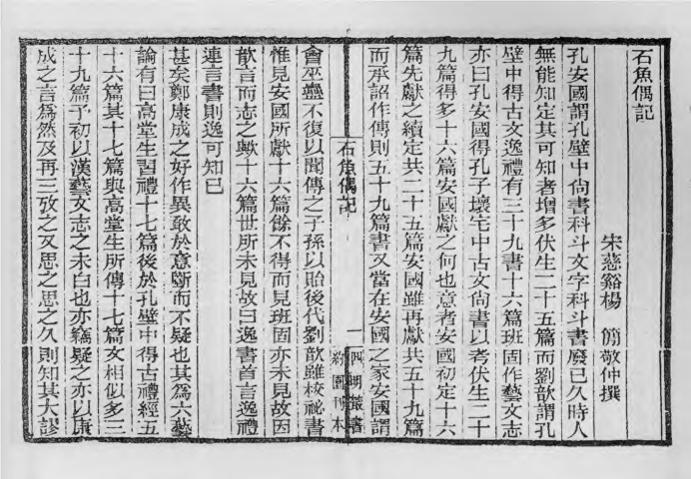 石魚偶記
宋慈谿楊 簡敬仲撰
孔安國謂孔壁中尙書科斗文字科斗書廢已久時人
無能知定其可知者增多伏生二十五篇而劉歆謂孔
壁中得古文逸禮有三十九書十六篇班固作藝文志
亦曰孔安國得孔子壞宅中古文尙書以考伏生二十
九篇得多十六篇安國獻之何也意者安國初定十六
篇先獻之續定共二十五篇安國雖再獻共五十九篇
而承詔作傳則五十九篇書又當在安國之家安國謂
石魚偶記
一
四明叢書
約園刊本
會巫蠱不復以聞傳之子孫以貽後代劉歆雖校祕書
惟見安國所獻十六篇餘不得而見班固亦未見故因
歆言而志之歟十六篇世所未見故曰逸書首言逸禮
連言書則逸可知已
甚矣鄭康成之好作異敢於意斷而不疑也其爲六藝
論有曰高堂生習禮十七篇後於孔壁中得古禮經五
十六篇其十七篇與高堂生所傳十七篇文相似多三
十九篇予初以漢藝文志之未白也亦竊疑之亦以康
成之言爲然及再三攷之又思之思之久則知其大謬